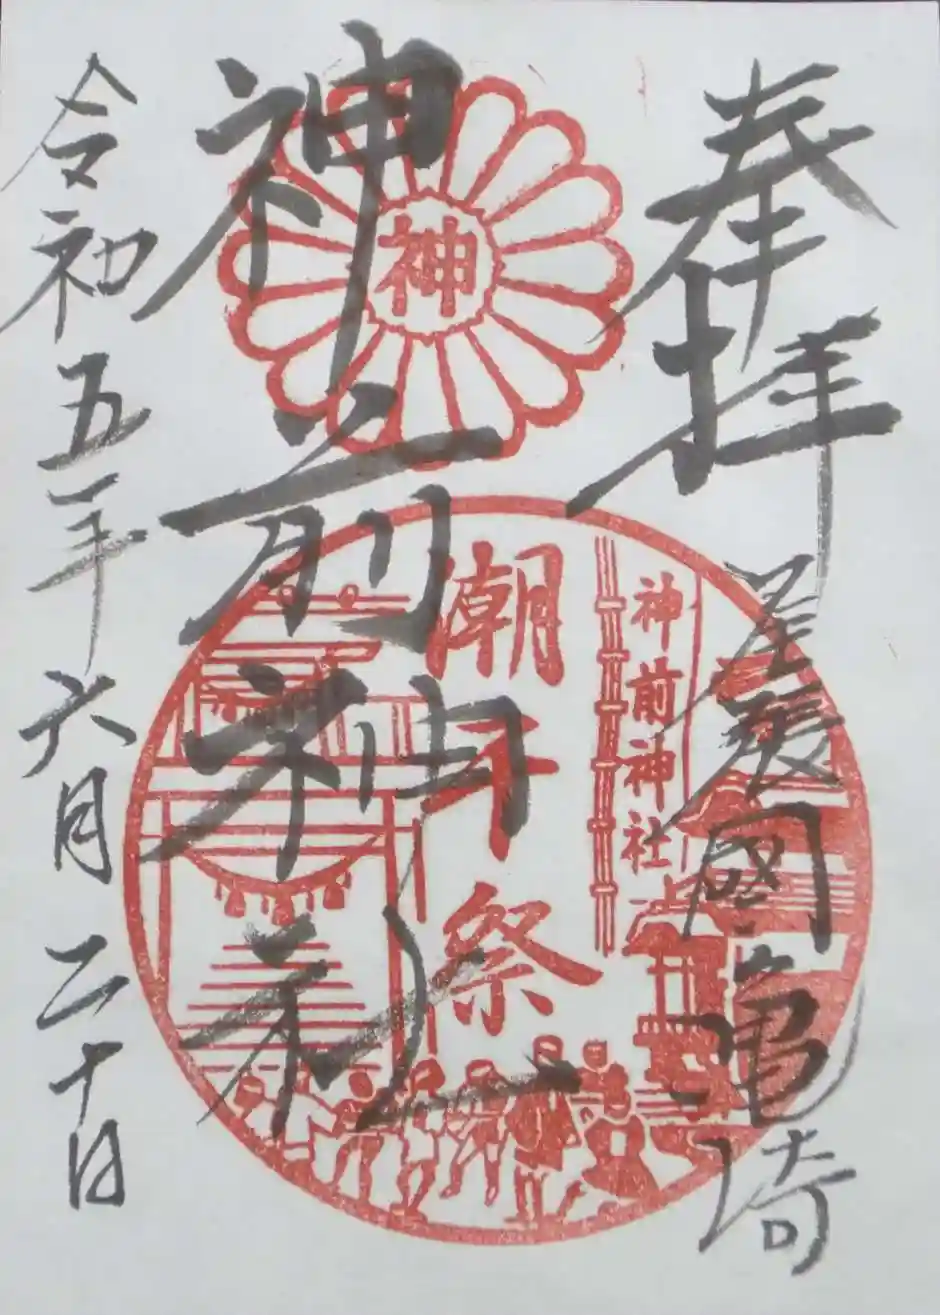 奉拝
尾張國亀崎
神前神社
令和五年六月二十日
神
神前神社
潮干祭